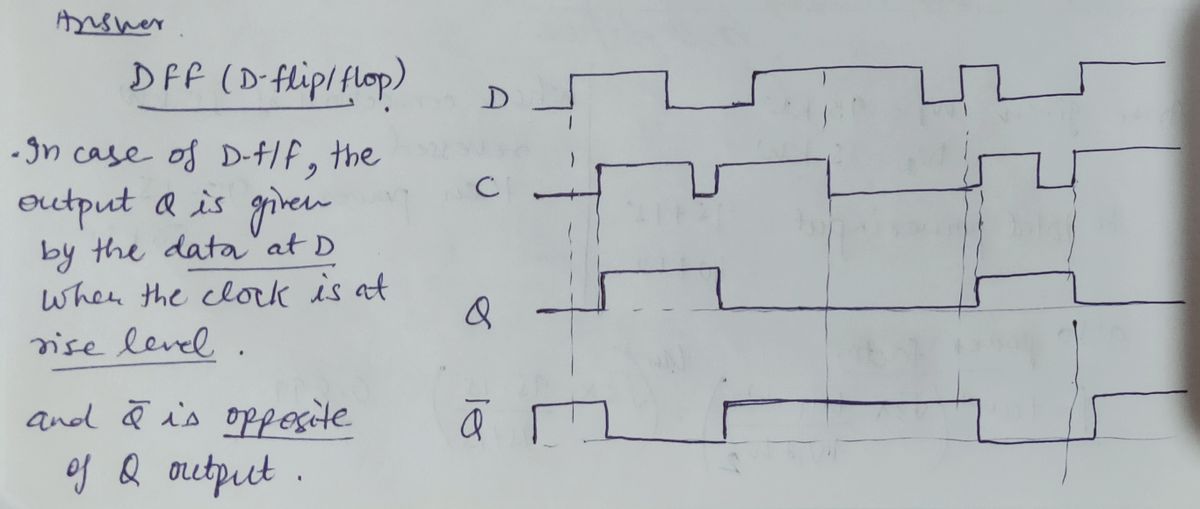 Answer.
DFF (D-flip/flop)
.In case of D-f/f, the
output Q is given
by the data at D
when the clock is at
rise level.
and Q̄ is opposite
of Q output.
D
C
Q
Q̄